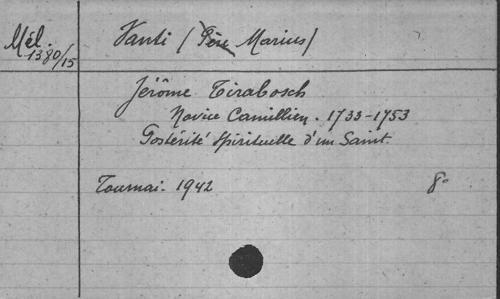 Mél.
1380/15
Vanti (Père Marius)
Jérôme Tirabosch
Novice Camillien. 1733-1753
Postérité spirituelle d'un Saint.
Tournai. 1942
8°